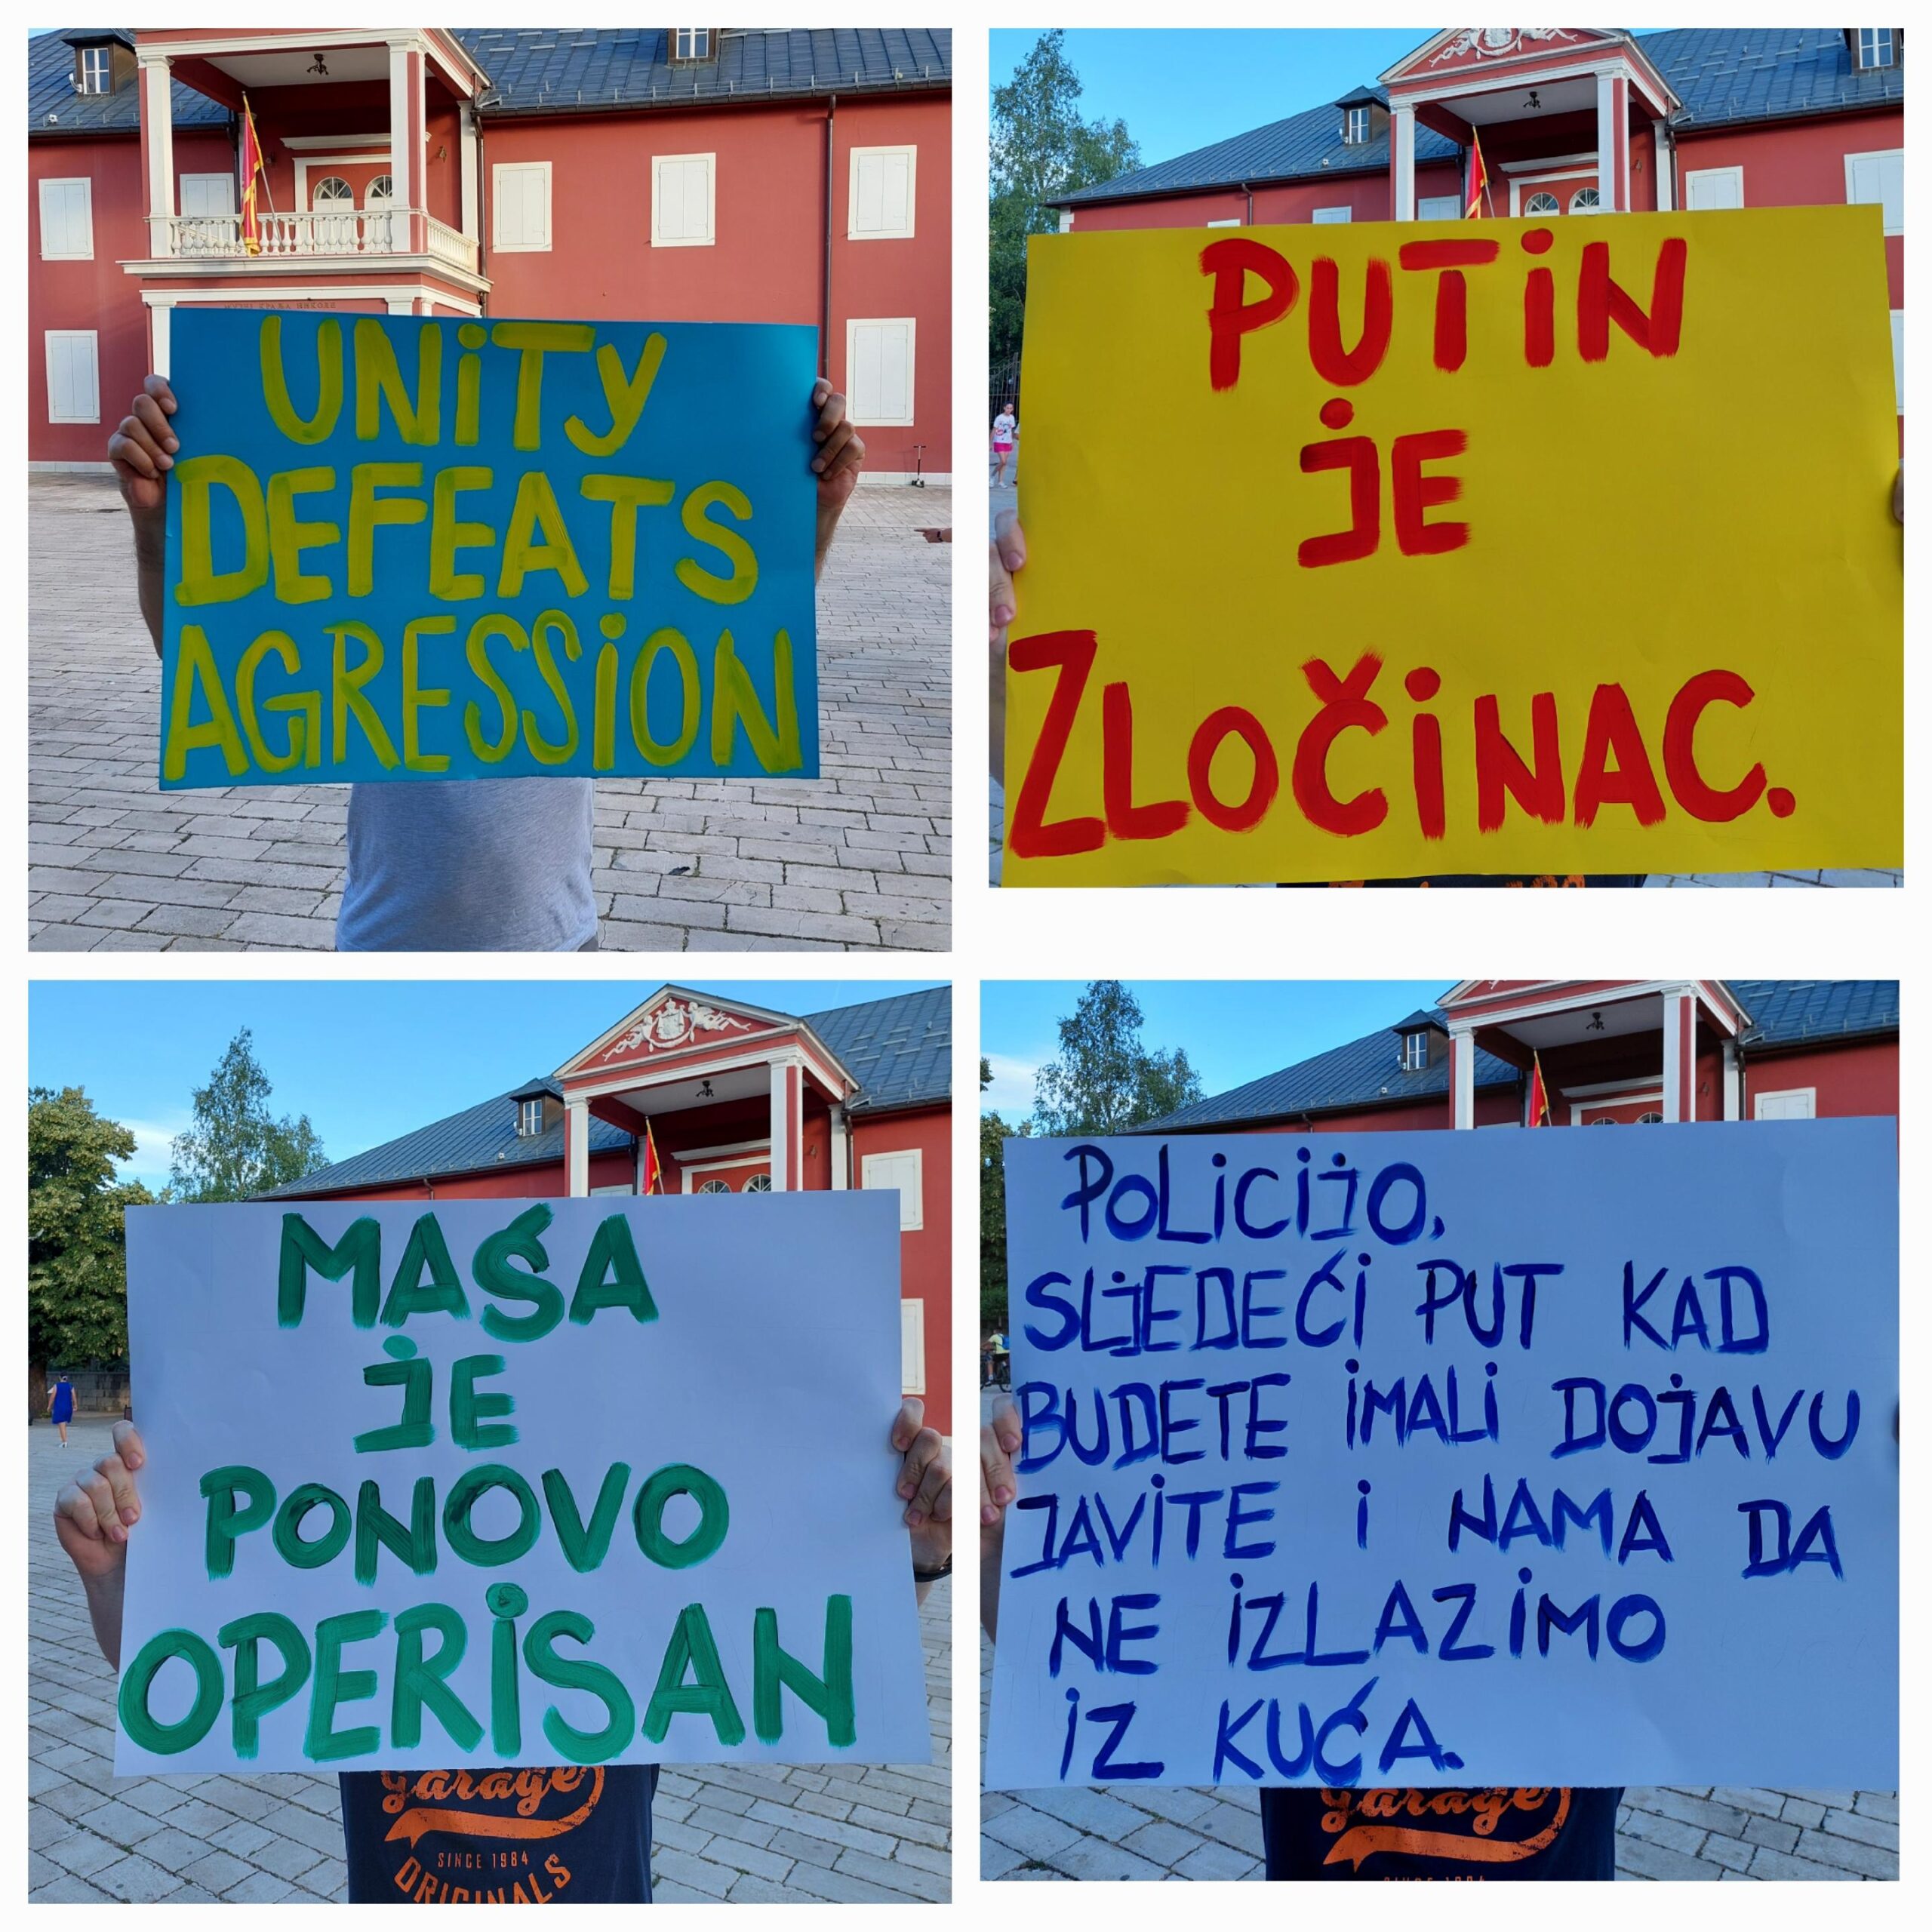 UNiTy
DEFEATS
AGRESSiON
PUTiN
jE
ZLOČiNAC.
MAŚA
jE
PONOVO
OPERiSAN
garage
SINCE 1984
ORIGINALS
POLiCijO,
SLjEDEĆi PUT KAD
BUDETE iMALi DOjAVU
JAViTE i NAMA DA
NE iZLAZiMO
iZ KUĆA.
garage